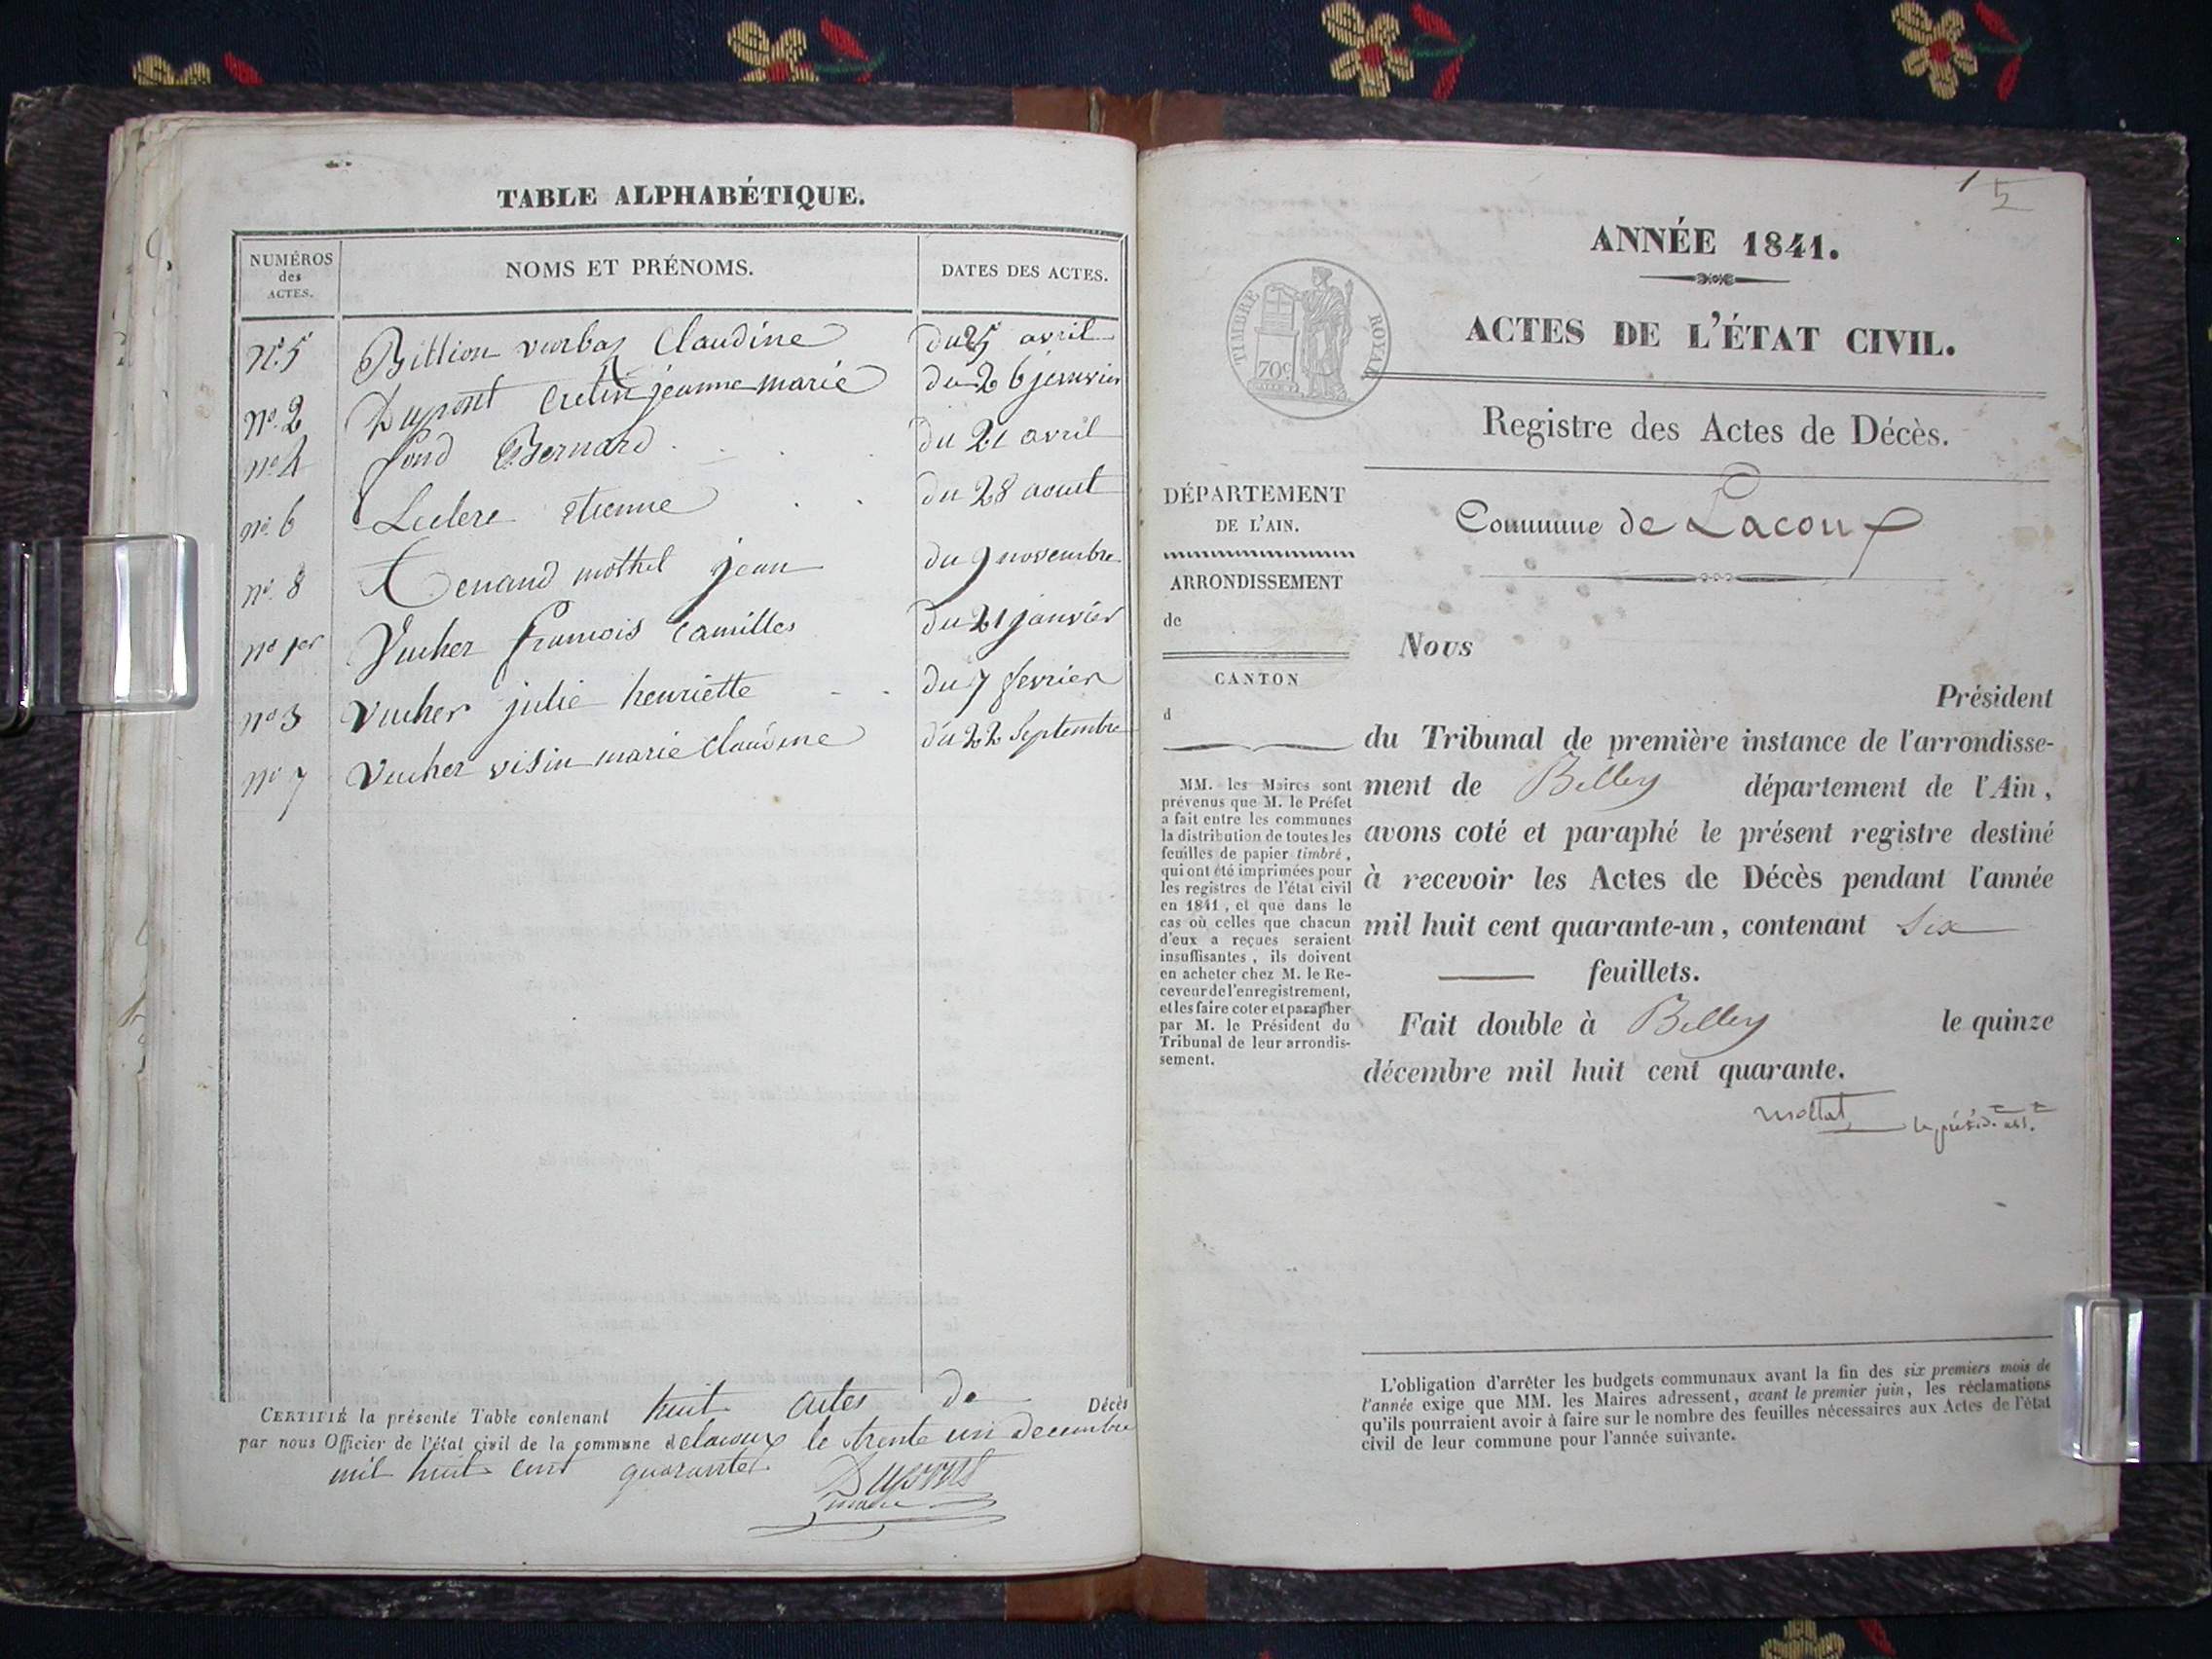 TABLE ALPHABÉTIQUE.
NUMÉROS
des
ACTES.
NOMS ET PRÉNOMS.
DATES DES ACTES.
No. 5 Billion Claudine du 25 avril
No. 2 Dupont Cretin jeanne marie du 26 jenvier
No 4 fond Bernard du 21 avril
No. 6 Leclerc etienne du 28 aout
No. 8 jean du 9 novembre
No 1er Vucher francois Camilles du 21 janvier
No 3 Vucher julie henriette du 7 fevrier
No 7 Vucher visin marie Claudine du 22 Septembre
CERTIFIÉ la présente Table contenant huit actes de Décès
par nous Officier de l'état civil de la commune de lacoux le trente un decembre
mil huit cent quarante
Dupont
maire
1
5
ANNÉE 1841.
TIMBRE ROYAL
70c.
ACTES DE L'ÉTAT CIVIL.
Registre des Actes de Décès.
Commune de Lacoux
DÉPARTEMENT
DE L'AIN.
ARRONDISSEMENT
de
CANTON
d
MM. les Maires sont
prévenus que M. le Préfet
a fait entre les communes
la distribution de toutes les
feuilles de papier timbré,
qui ont été imprimées pour
les registres de l'état civil
en 1841, et que dans le
cas où celles que chacun
d'eux a reçues seraient
insuffisantes, ils doivent
en acheter chez M. le Re-
ceveur de l'enregistrement,
et les faire coter et parapher
par M. le Président du
Tribunal de leur arrondis-
sement.
Nous
Président
du Tribunal de première instance de l'arrondisse-
ment de Belley département de l'Ain,
avons coté et paraphé le présent registre destiné
à recevoir les Actes de Décès pendant l'année
mil huit cent quarante-un, contenant Six
feuillets.
Fait double à Belley le quinze
décembre mil huit cent quarante.
L'obligation d'arrêter les budgets communaux avant la fin des six premiers mois de
l'année exige que MM. les Maires adressent, avant le premier juin, les réclamations
qu'ils pourraient avoir à faire sur le nombre des feuilles nécessaires aux Actes de l'état
civil de leur commune pour l'année suivante.